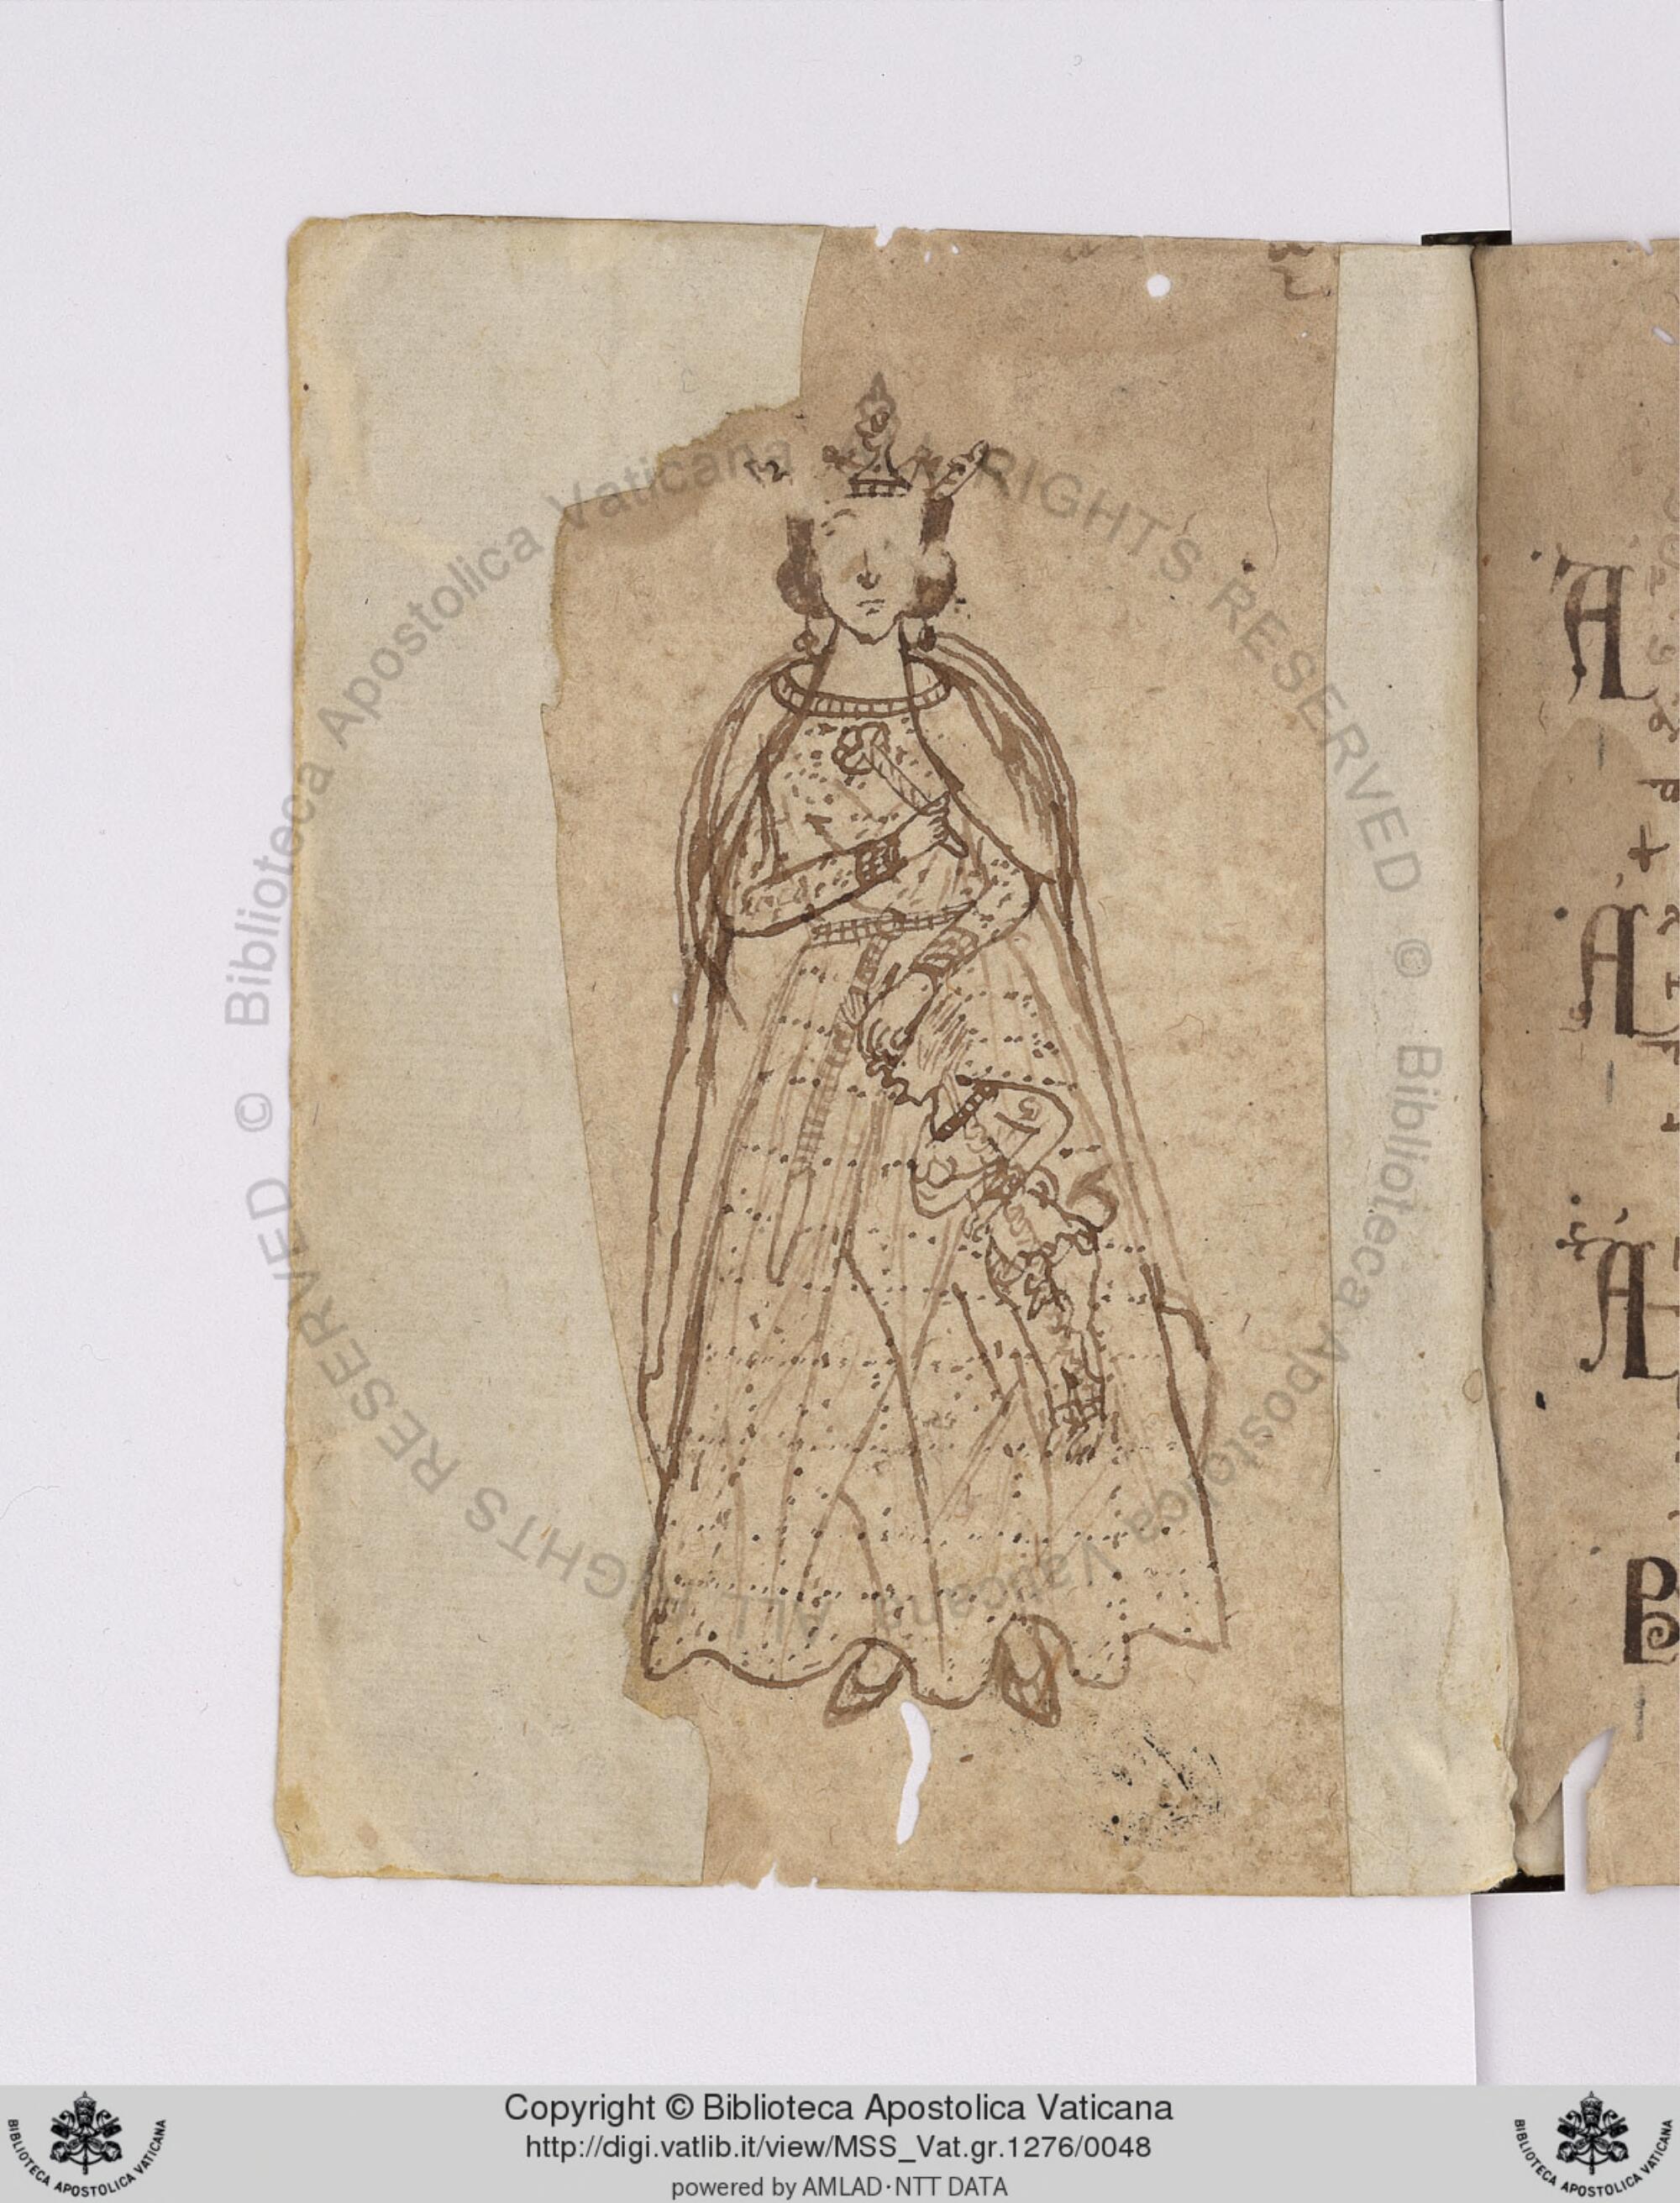 © Biblioteca Apostolica Vaticana ALL RIGHTS RESERVED © Biblioteca Apostolica Vaticana ALL RIGHTS RESERVED
Α
Α
Α
Ρ
Copyright © Biblioteca Apostolica Vaticana
http://digi.vatlib.it/view/MSS_Vat.gr.1276/0048
powered by AMLAD·NTT DATA
BIBLIOTECA APOSTOLICA VATICANA
BIBLIOTECA APOSTOLICA VATICANA